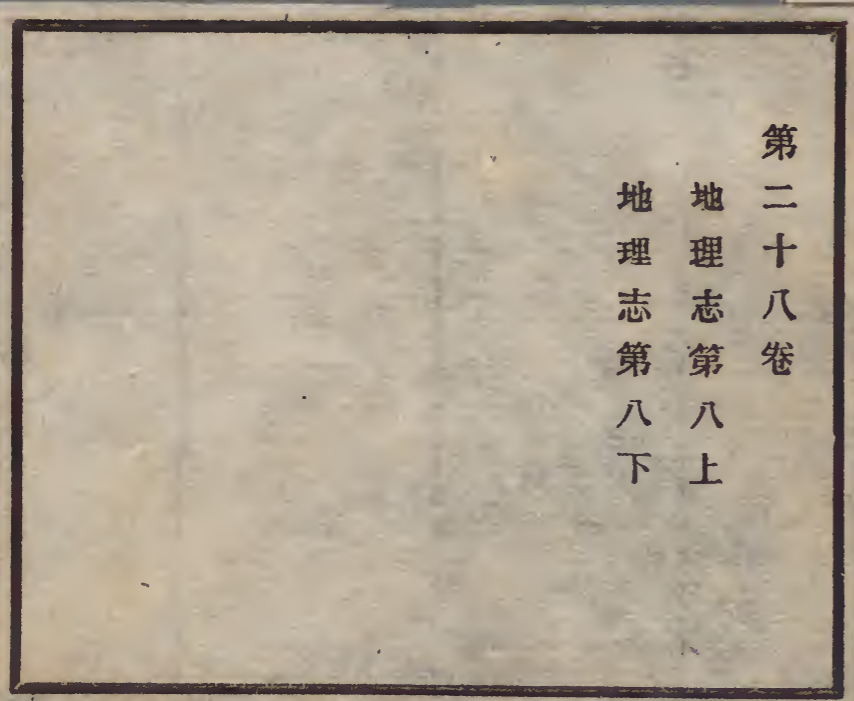 第二十八卷
地理志第八上
地理志第八下